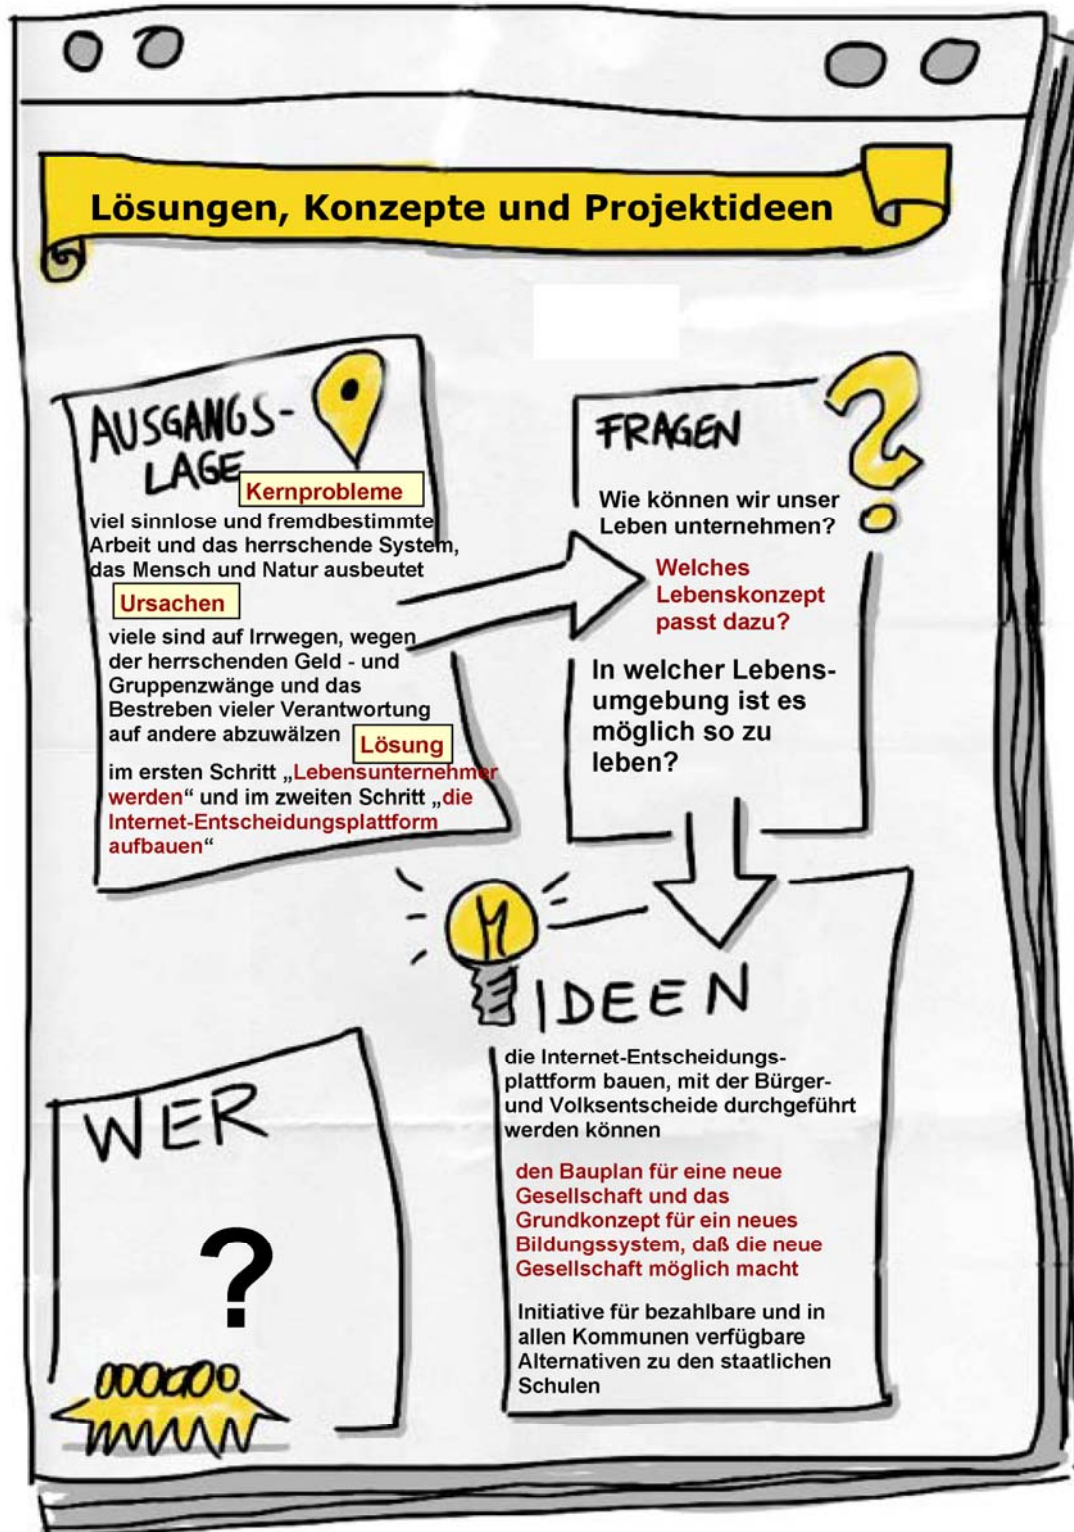 Lösungen, Konzepte und Projektideen
AUSGANGS-
LAGE
Kernprobleme
viel sinnlose und fremdbestimmte
Arbeit und das herrschende System,
das Mensch und Natur ausbeutet
Ursachen
viele sind auf Irrwegen, wegen
der herrschenden Geld - und
Gruppenzwänge und das
Bestreben vieler Verantwortung
auf andere abzuwälzen
Lösung
im ersten Schritt „Lebensunternehmer
werden“ und im zweiten Schritt „die
Internet-Entscheidungsplattform
aufbauen“
FRAGEN
Wie können wir unser
Leben unternehmen?
Welches
Lebenskonzept
passt dazu?
In welcher Lebens-
umgebung ist es
möglich so zu
leben?
IDEEN
die Internet-Entscheidungs-
plattform bauen, mit der Bürger-
und Volksentscheide durchgeführt
werden können
den Bauplan für eine neue
Gesellschaft und das
Grundkonzept für ein neues
Bildungssystem, daß die neue
Gesellschaft möglich macht
Initiative für bezahlbare und in
allen Kommunen verfügbare
Alternativen zu den staatlichen
Schulen
WER
?